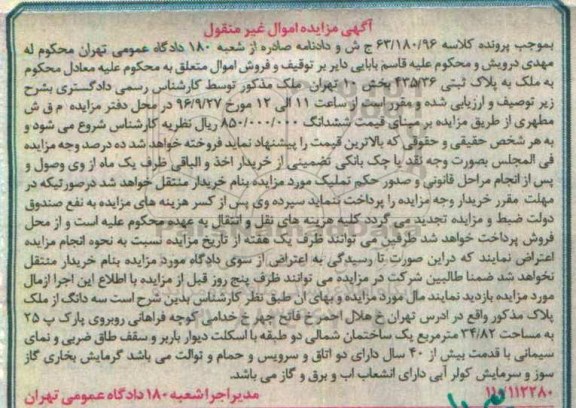 آگهی مزایده اموال غیر منقول
بموجب پرونده کلاسه ۶۳/۱۸۰/۹۶ ج ش و دادنامه صادره از شعبه ۱۸۰ دادگاه عمومی تهران محکوم له
مهدی درویش و محکوم علیه قاسم بابایی دایر بر توقیف و فروش اموال متعلق به محکوم علیه معادل محکوم
به ملک به پلاک ثبتی ۴۳۵/۳۶ بخش ۱۰ تهران ملک مذکور توسط کارشناس رسمی دادگستری بشرح
زیر توصیف و ارزیابی شده و مقرر است از ساعت ۱۱ الی ۱۲ مورخ ۹۶/۹/۲۷ در محل دفتر مزایده م ق ش
مطهری از طریق مزایده بر مبنای قیمت ششدانگ ۸۵۰/۰۰۰/۰۰۰ ریال نظریه کارشناس شروع می شود و
به هر شخص حقیقی و حقوقی که بالاترین قیمت را پیشنهاد نماید فروخته خواهد شد ده درصد وجه مزایده
فی المجلس بصورت وجه نقد یا چک بانکی تضمینی از خریدار اخذ و الباقی ظرف یک ماه از وی وصول و
پس از انجام مراحل قانونی و صدور حکم تملیک مورد مزایده بنام خریدار منتقل خواهد شد درصورتیکه در
مهلت مقرر خریدار وجه مزایده را پرداخت ننماید سپرده وی پس از کسر هزینه های مزایده به نفع صندوق
دولت ضبط و مزایده تجدید می گردد کلیه هزینه های نقل و انتقال به عهده محکوم علیه است و از محل
فروش پرداخت خواهد شد طرفین می توانند ظرف یک هفته از تاریخ مزایده نسبت به نحوه انجام مزایده
اعتراض نمایند که دراین صورت تا رسیدگی به اعتراض از سوی دادگاه مورد مزایده بنام خریدار منتقل
نخواهد شد ضمنا طالبین شرکت در مزایده می توانند ظرف پنج روز قبل از مزایده با اطلاع این اجرا ازمال
مورد مزایده بازدید نمایند مال مورد مزایده و بهای آن طبق نظر کارشناس بدین شرح است سه دانگ از ملک
پلاک مذکور واقع در ادرس تهران خ هلال احمر خ فاتح چهر خ خدامی کوچه فراهانی روبروی پارک پ ۲۵
به مساحت ۳۴/۸۲ مترمربع یک ساختمان شمالی دو طبقه با اسکلت دیوار باربر و سقف طاق ضربی و نمای
سیمانی با قدمت بیش از ۴۰ سال دارای دو اتاق و سرویس و حمام و توالت می باشد گرمایش بخاری گاز
سوز و سرمایش کولر آبی دارای انشعاب اب و برق و گاز می باشد.
مدیر اجرا شعبه ۱۸۰ دادگاه عمومی تهران